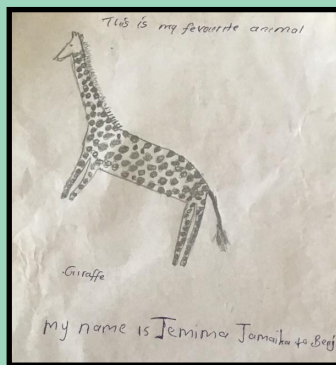 This is my fevourite animal
.Giraffe
my name is Jemima Jamaika to Benj